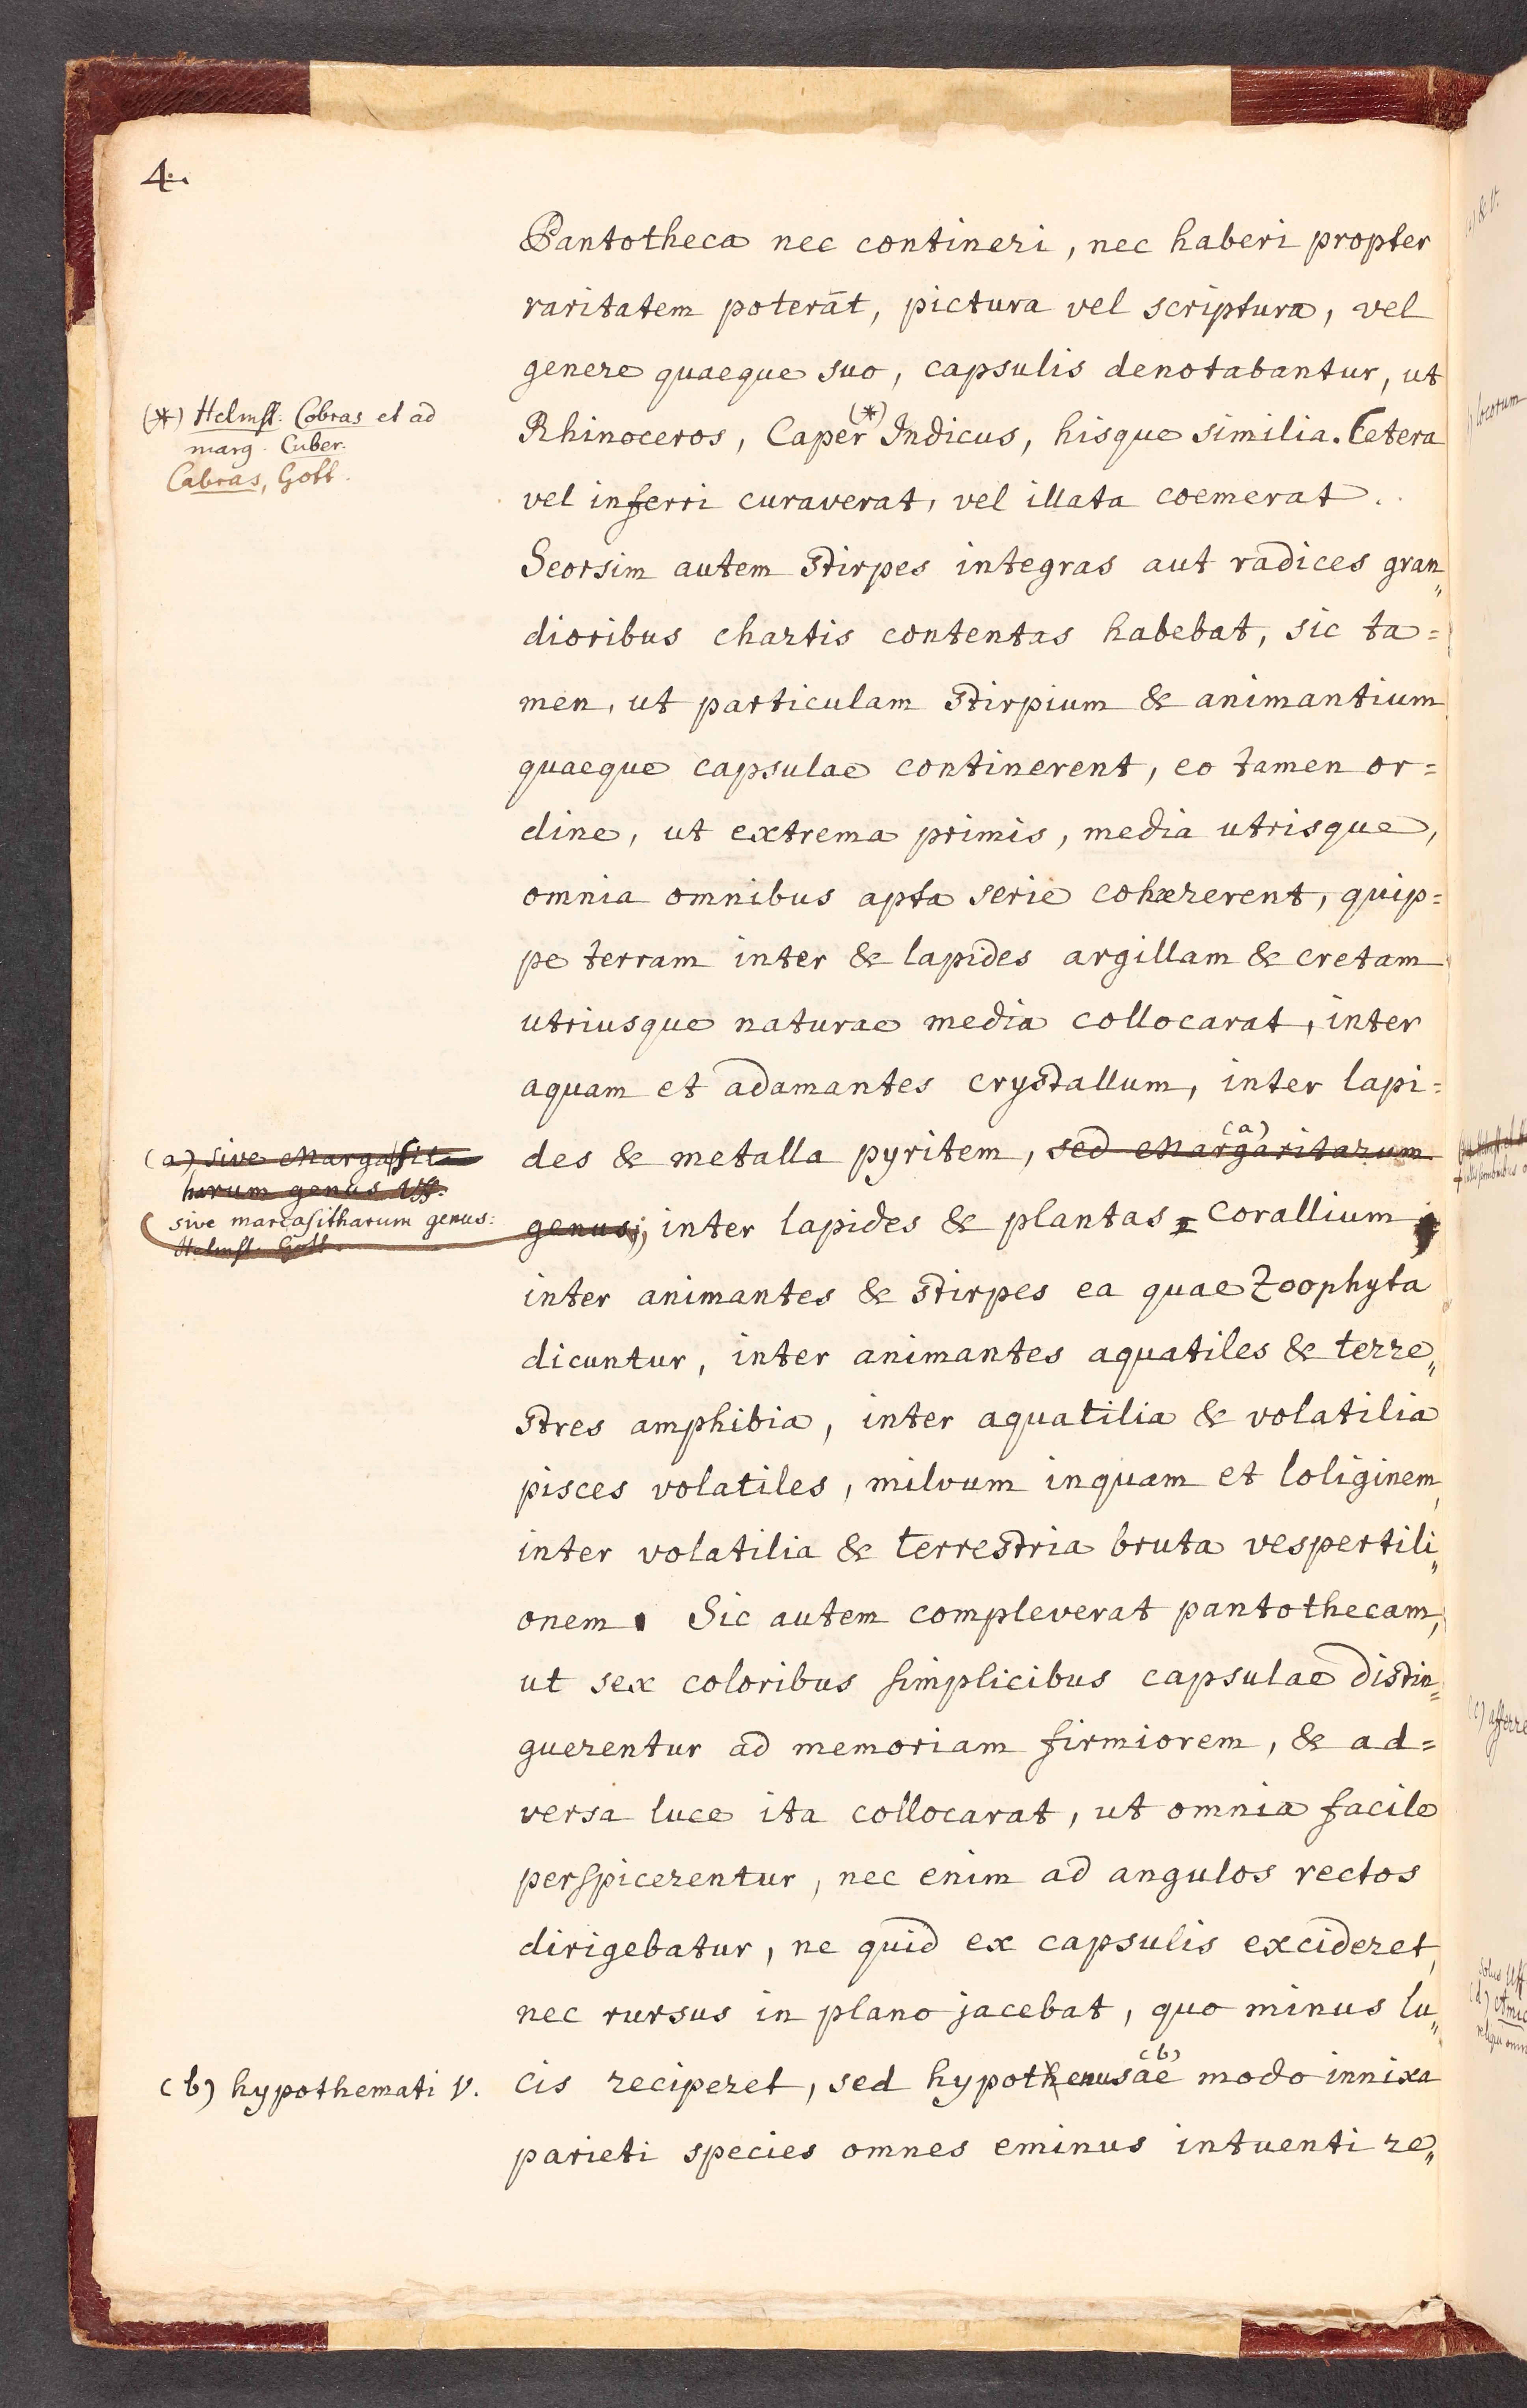 4.
Pantotheca nec contineri, nec haberi propter
raritatem poterāt, pictura vel scriptura, vel
genere quaeque suo, capsulis denotabantur, ut
(*) Helmst. Cobras et ad
marg. Cuber.
Cabras, Gott.
Rhinoceros, Caper (*) Indicus, hisque similia. Cetera
vel inferri curaverat, vel illata coemerat.
Seorsim autem stirpes integras aut radices gran„
dioribus chartis contentas habebat, sic ta=
men, ut particulam stirpium & animantium
quaeque capsulae continerent, eo tamen or=
dine, ut extrema primis, media utrisque,
omnia omnibus apta serie cohærerent, quip=
pe terram inter & lapides argillam & cretam
utriusque naturae media collocarat, inter
aquam et adamantes crystallum, inter lapi=
(a) sive Margasita
harum genus Uff.
sive marcasitharum genus:
Helmst. Gott.
des & metalla pyritem, sed Margaritarum (a)
genus; inter lapides & plantas Corallium,
inter animantes & stirpes ea quae Zoophyta
dicuntur, inter animantes aquatiles & terre„
stres amphibia, inter aquatilia & volatilia
pisces volatiles, milvum inquam et loliginem,
inter volatilia & terrestria bruta vespertili„
onem. Sic autem compleverat pantothecam,
ut sex coloribus simplicibus capsulae distin„
guerentur ad memoriam firmiorem, & ad=
versa luce ita collocarat, ut omnia facile
perspicerentur, nec enim ad angulos rectos
dirigebatur, ne quid ex capsulis excideret,
nec rursus in plano jacebat, quo minus lu„
(b) hypothemati V.
cis reciperet, sed hypothenusae (b) modo innixa
parieti species omnes eminus intuenti re„